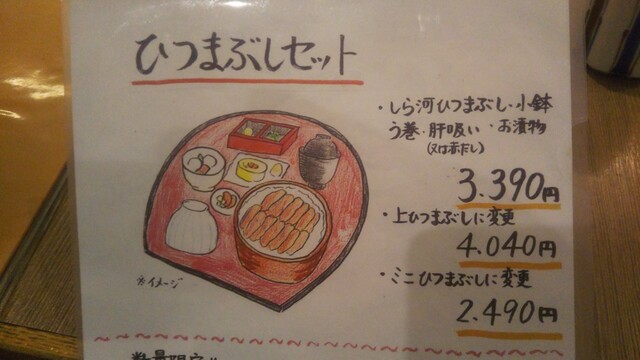 ひつまぶしセット
・しら河ひつまぶし・小鉢
う巻・肝吸い・お漬物
(又は赤だし)
3.390円
・上ひつまぶしに変更
4.040円
・ミニひつまぶしに変更
2.490円
※イメージ
数量限定